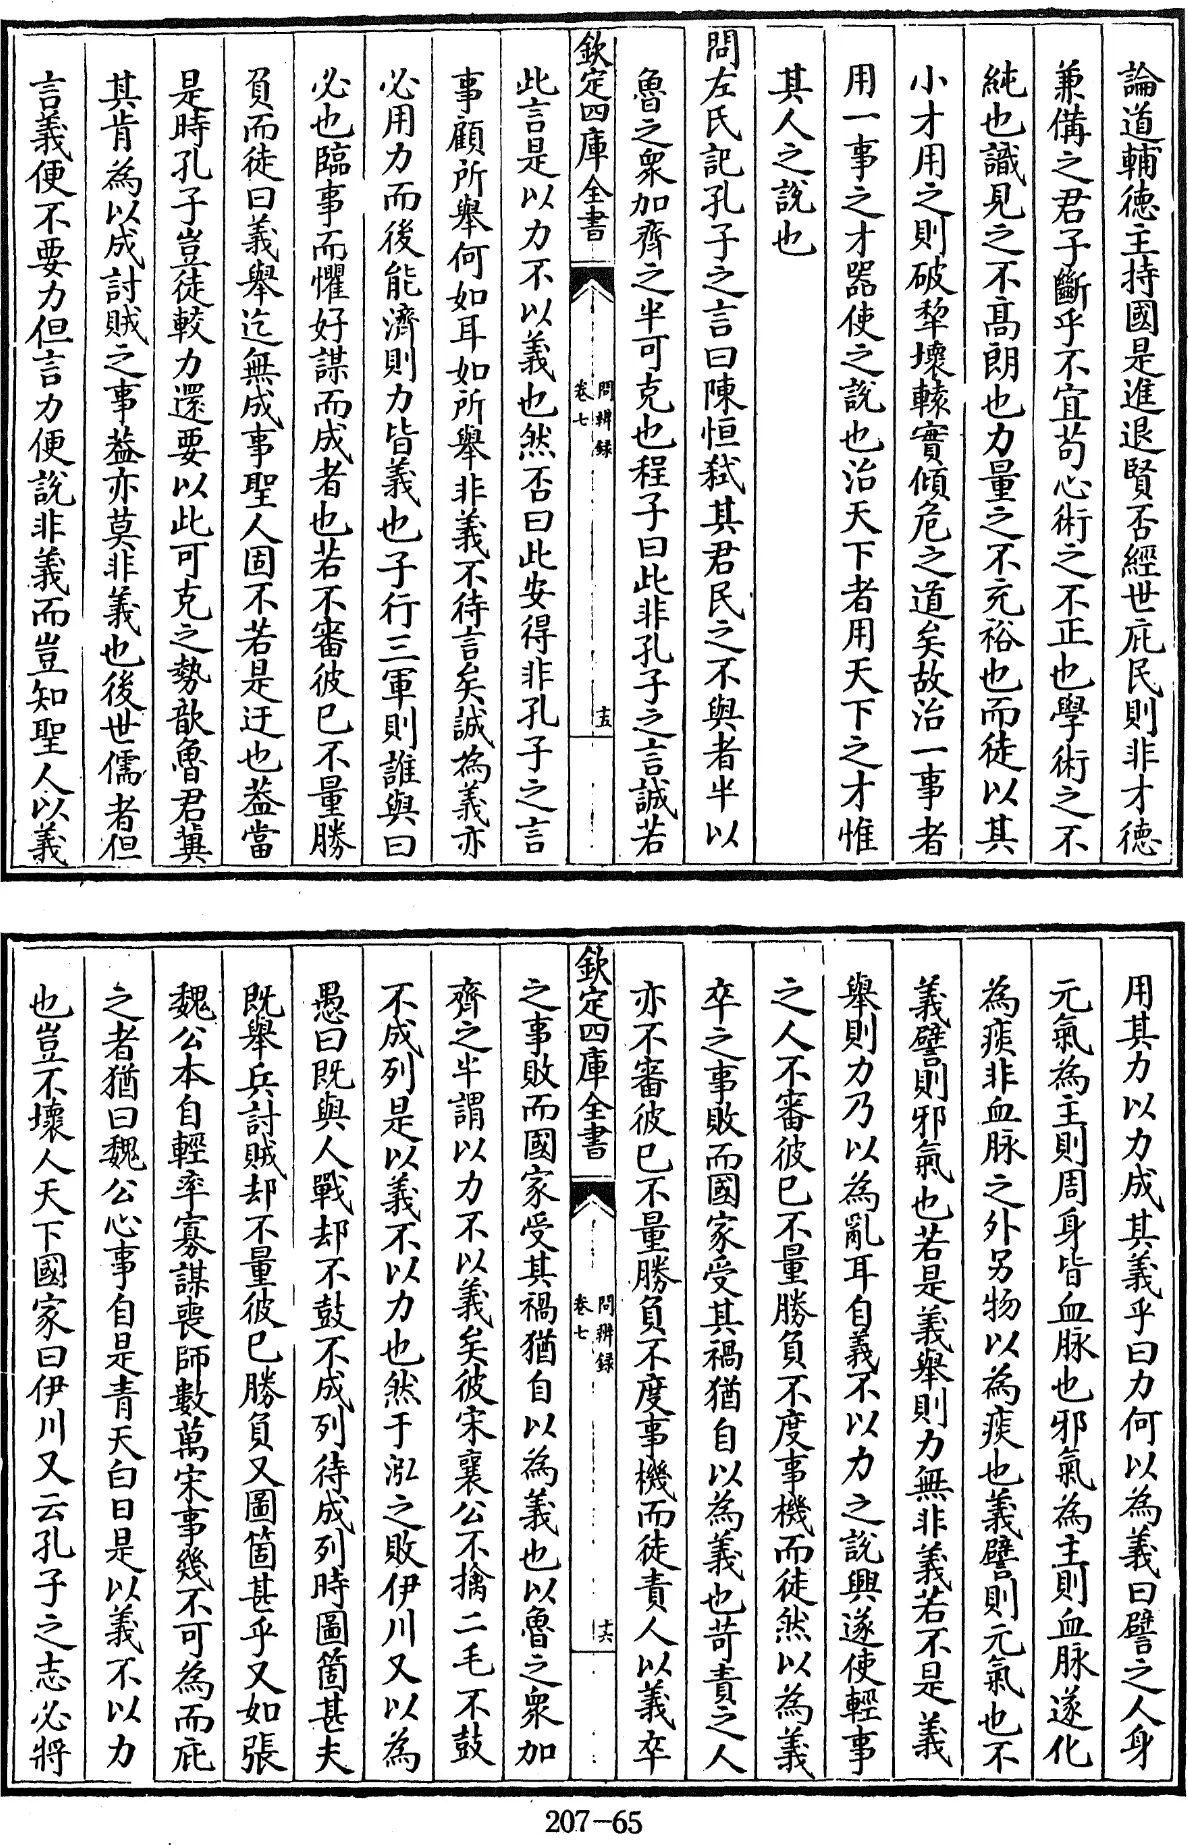 論道輔德主持國是進退賢否經世庇民則非才德
兼備之君子斷乎不宜苟心術之不正也學術之不
純也識見之不高朗也力量之不充裕也而徒以其
小才用之則破犂壞轅實傾危之道矣故治一事者
用一事之才器使之說也治天下者用天下之才惟
其人之說也
問左氏記孔子之言曰陳恒弑其君民之不與者半以
魯之衆加齊之半可克也程子曰此非孔子之言誠若
欽定四庫全書
問辨録
卷七
十五
此言是以力不以義也然否曰此安得非孔子之言
事顧所舉何如耳如所舉非義不待言矣誠為義亦
必用力而後能濟則力皆義也子行三軍則誰與曰
必也臨事而懼好謀而成者也若不審彼已不量勝
負而徒曰義舉迄無成事聖人固不若是迂也葢當
是時孔子豈徒較力還要以此可克之勢歆魯君冀
其肯為以成討賊之事葢亦莫非義也後世儒者但
言義便不要力但言力便說非義而豈知聖人以義
用其力以力成其義乎曰力何以為義曰譬之人身
元氣為主則周身皆血脉也邪氣為主則血脉遂化
為痰非血脉之外另物以為痰也義譬則元氣也不
義譬則邪氣也若是義舉則力無非義若不是義
舉則力乃以為亂耳自義不以力之說興遂使輕事
之人不審彼已不量勝負不度事機而徒然以為義
卒之事敗而國家受其禍猶自以為義也苛責之人
亦不審彼已不量勝負不度事機而徒責人以義卒
欽定四庫全書
問辨録
卷七
十六
之事敗而國家受其禍猶自以為義也以魯之衆加
齊之半謂以力不以義矣彼宋襄公不擒二毛不鼓
不成列是以義不以力也然于泓之敗伊川又以為
愚曰既與人戰却不鼓不成列待成列時圖箇甚夫
既舉兵討賊却不量彼已勝負又圖箇甚乎又如張
魏公本自輕率寡謀喪師數萬宋事幾不可為而庇
之者猶曰魏公心事自是青天白日是以義不以力
也豈不壞人天下國家曰伊川又云孔子之志必將
207-65